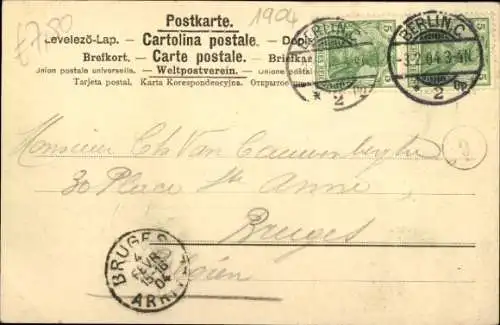 £7.50
1904
Postkarte.
Levelező-Lap. — Cartolina postale.
Brefkort. — Carte postale. — Brefkaart
Union postale universelle. — Weltpostverein. — Unione postal
Tarjeta postal. Karta Korespondencyjna.
BERLIN, C.
2
BERLIN, C.
-3.2.04.3-4N.
2
5
5
Monsieur Chs Van Cauwenberghe
3
30 Place Ste Anne
Bruges
BRUGES
4
FEVR
04